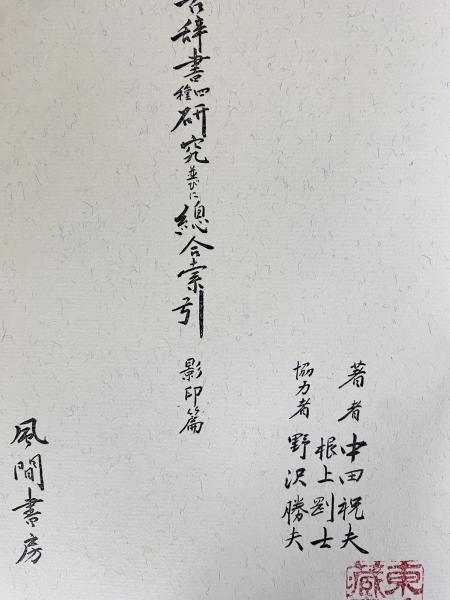 著者 中田祝夫
根上剛士
協力者 野沢勝夫
古辞書四種研究並びに總合索引 影印篇
風間書房
東
藏